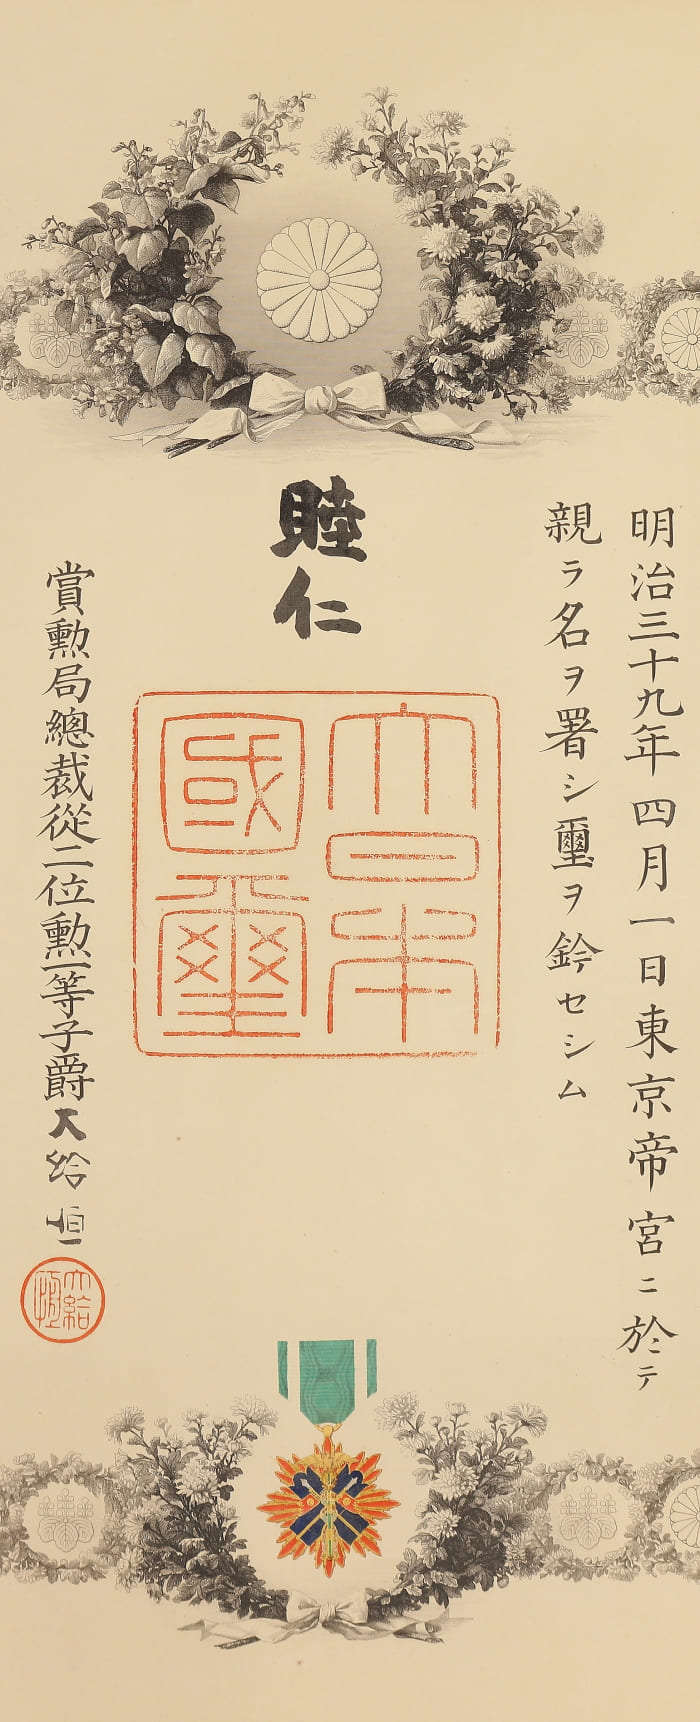 明治三十九年四月一日東京帝宮ニ於テ
親ラ名ヲ署シ璽ヲ鈐セシム
睦仁
大日本
國璽
賞勲局總裁從二位勲一等子爵大給恒
大給
恒